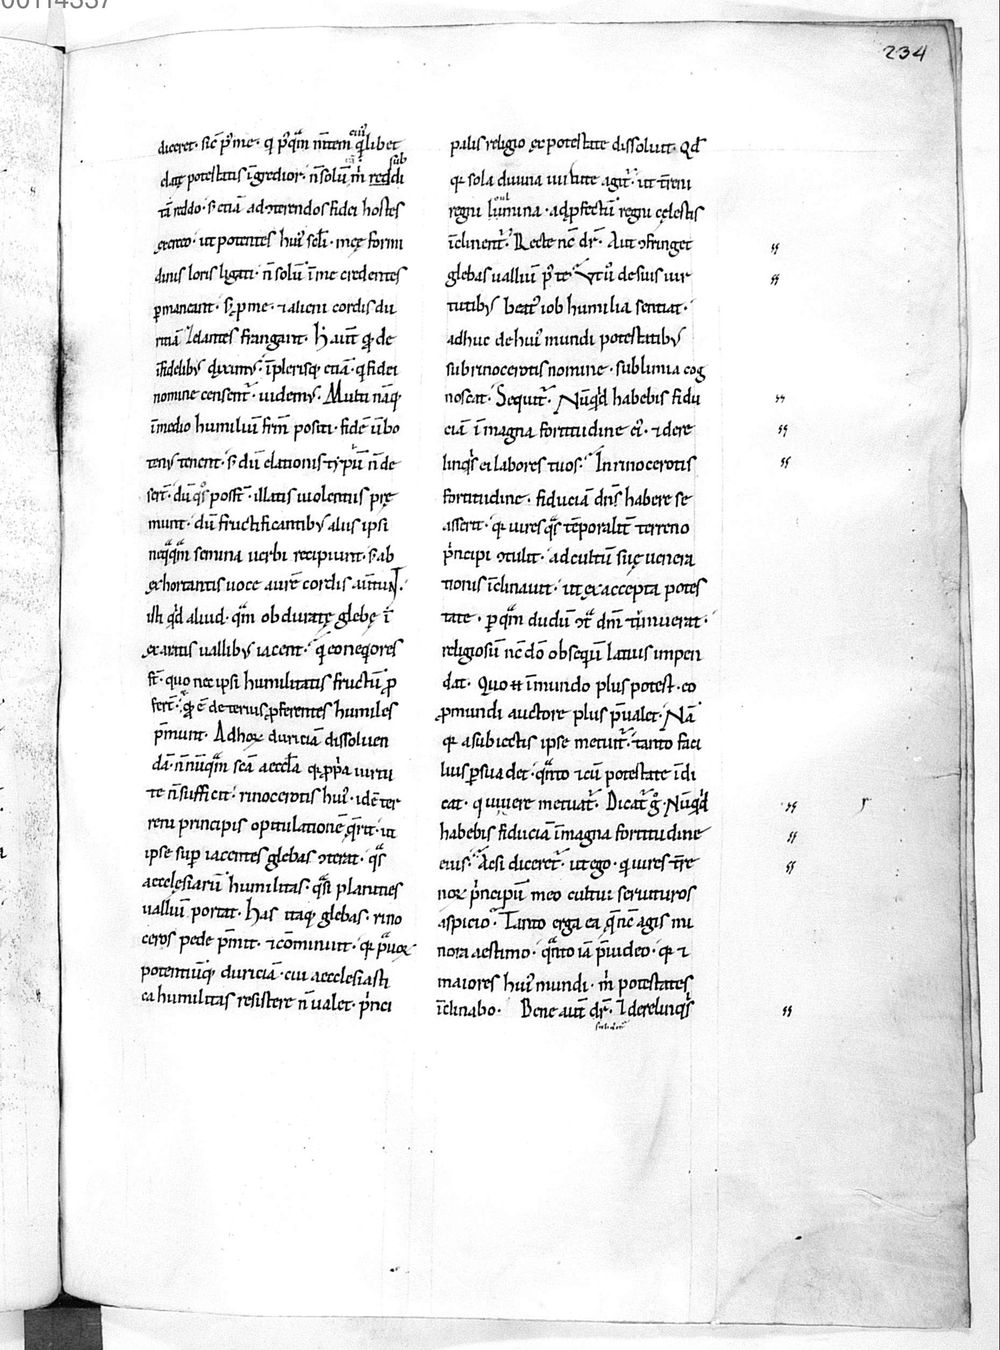 00114337
234
diceret· sic̄ p̱ me· q̇ p̱ q̄m mītem q̇libet
clarę potestatis īgredior· n̄ solū m̊ reddi
sub
tā reddo· s; etiā ad ɔterendos fidei hostes
exerceo· ut potentes huı᾽ scl̄i· meę formi
dinis loris ligati· n̄ solū ī me credentes
ꝑmaneant· s; ꝑ me· ⁊ alieni cordis du
ritiā zelantes frangant· H̊ aut̄ qđ de
īfidelibꝰ diximꝰ· ī plerisq; etiā· q̇ fidei
nomine censent᷑· uidemꝰ· Multi nāq;
ī medio humiliū fr̄m positi· fidē ūbo
tenꝰ tenent· s; dū elationis typū n̄ de
sert̄· dū q̊s poss̄t· illatis uiolentiis prę
munt· dū fructificantibꝰ aliis ipsi
neq̄q̄m semina uerbi recipiunt· s; ab
exhortantis uoce aurē cordis auertunt·
isti qđ aliud· q̄m obduratę glebę ī
exaratis uallibꝰ iacent· q̇ eo neqores
st̄· quo nec ipsi humilitatis fructū ꝓ
fert̄· ⁊ qđ ē deterius ꝓferentes humiles
p̄munt· Ad hoꝝ duriciā dissoluen
dā· n̄nūq̄m sc̄a aeccl̄a q̇ ꝓp̄a uirtu
te n̄ sufficit· rinocerotis huı᾽· idē ter
reni principis opitulationē q̄rit· ut
ipse sup̱ iacentes glebas ɔterat· q̄s
aecclesiarū humilitas· q̄si planities
ualliū portat· Has itaq; glebas· rino
ceros pede p̄mit· ⁊ cōminuit· q̇ p̄uoꝝ
potentiūq; duriciā· cui aecclesiasti
ca humilitas resistere n̄ ualet· p̊nci
palis religio ex potestate dissoluit· Qđ
q̇ sola diuina uirtute agit᷑· ut t̄reni
regni culmina· ad ꝓfectū regni cęlestis
īclinent᷑· Recte nc̄ dr̄· Aut ɔfringet
glebas ualliū p̱᾽ te· Vt ū de suis uir
tutibꝰ beat᾽ iob humilia sentiat·
adhuc de huı᾽ mundi potestatibꝰ
sub rinocerotis nomine· sublimia cog
noscat· Sequit᷑· Nūqđ habebis fidu
ciā ī magna fortitudine eı᾽· ⁊ dere
linq̇s ei labores tuos· In rinocerotis
fortitudine· fiduciā dn̄s habere se
asserit· q̇ uires q̄s tēporalit̄ terreno
p̊ncipi ɔtulit· ad cultū suę uenera
tionis īclinauit· ut ex accepta potes
tate· ꝑ q̄m dudū ɔ̄ dm̄ tumuerat·
religiosū nc̄ dō obsequiū latius impen
dat· Quo n̄ ī mundo plus potest· eo
ꝓ mundi auctore plus p̄ualet· Nā
q̇ a subiectis ipse metuit᷑· tanto faci
lius ꝑsuadet· q̄nto ⁊ cū potestate īdi
cat· q̇ uiuere metuat᷑· Dicat᷑ ḡ· Nūqđ
habebis fiduciā ī magna fortitudine
eius· Ac si diceret᷑· ut ego· q̇ uires t̄re
noꝝ p̊ncipū meo cultui seruituros
aspicio· Tanto erga ea q̄ nc̄ agis mi
nora aestimo· q̄nto iā p̄uideo· q̇ ⁊
maiores huı᾽ mundi· m̊ potestates
īclinabo· Bene aut̄ dr̄· ⁊ derelinq̇s